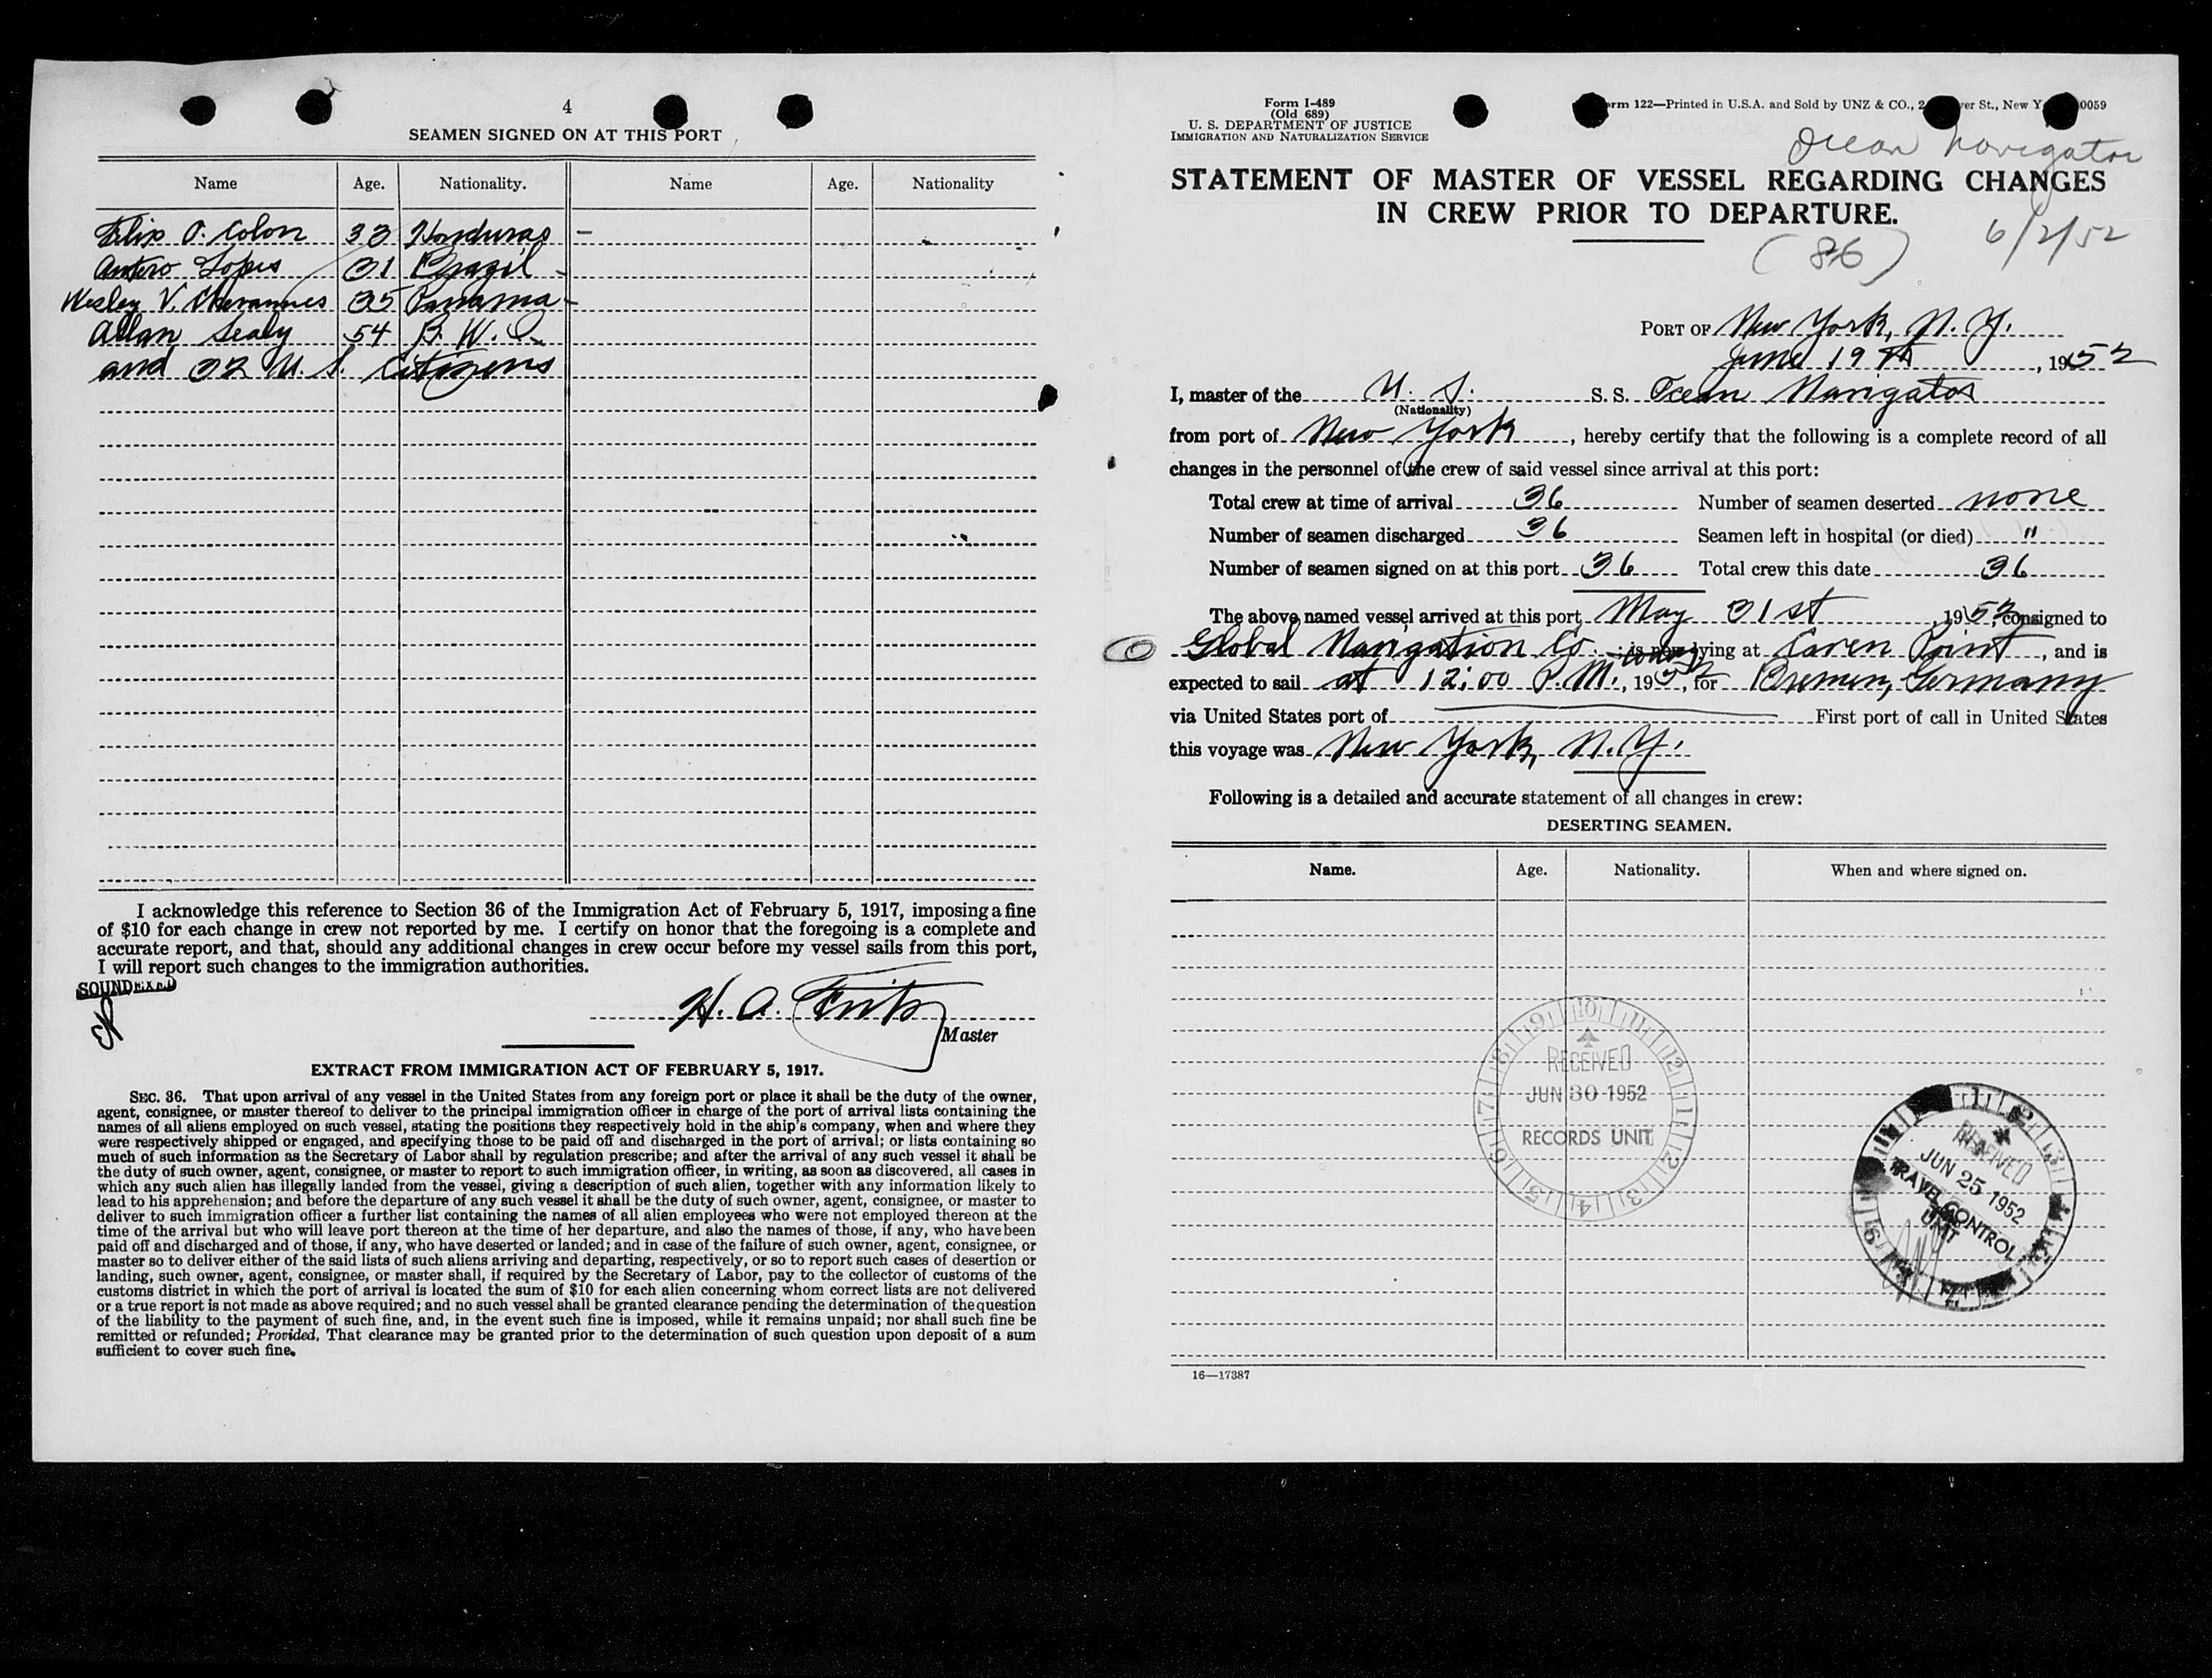 4
SEAMEN SIGNED ON AT THIS PORT
Name Age. Nationality. Name Age. Nationality
Elix O. Colon 33 Honduras –
Antero Lopes 31 Brazil -
Wesley V. Chevannes 35 Panama -
Allan Sealy 54 B. W. I.
and 32 U. S. Citizens
I acknowledge this reference to Section 36 of the Immigration Act of February 5, 1917, imposing a fine
of $10 for each change in crew not reported by me. I certify on honor that the foregoing is a complete and
accurate report, and that, should any additional changes in crew occur before my vessel sails from this port,
I will report such changes to the immigration authorities.
SOUNDEXED
H. A. Fritz
Master
EXTRACT FROM IMMIGRATION ACT OF FEBRUARY 5, 1917.
SEC. 36. That upon arrival of any vessel in the United States from any foreign port or place it shall be the duty of the owner,
agent, consignee, or master thereof to deliver to the principal immigration officer in charge of the port of arrival lists containing the
names of all aliens employed on such vessel, stating the positions they respectively hold in the ship's company, when and where they
were respectively shipped or engaged, and specifying those to be paid off and discharged in the port of arrival; or lists containing so
much of such information as the Secretary of Labor shall by regulation prescribe; and after the arrival of any such vessel it shall be
the duty of such owner, agent, consignee, or master to report to such immigration officer, in writing, as soon as discovered, all cases in
which any such alien has illegally landed from the vessel, giving a description of such alien, together with any information likely to
lead to his apprehension; and before the departure of any such vessel it shall be the duty of such owner, agent, consignee, or master to
deliver to such immigration officer a further list containing the names of all alien employees who were not employed thereon at the
time of the arrival but who will leave port thereon at the time of her departure, and also the names of those, if any, who have been
paid off and discharged and of those, if any, who have deserted or landed; and in case of the failure of such owner, agent, consignee, or
master so to deliver either of the said lists of such aliens arriving and departing, respectively, or so to report such cases of desertion or
landing, such owner, agent, consignee, or master shall, if required by the Secretary of Labor, pay to the collector of customs of the
customs district in which the port of arrival is located the sum of $10 for each alien concerning whom correct lists are not delivered
or a true report is not made as above required; and no such vessel shall be granted clearance pending the determination of the question
of the liability to the payment of such fine, and, in the event such fine is imposed, while it remains unpaid; nor shall such fine be
remitted or refunded; Provided, That clearance may be granted prior to the determination of such question upon deposit of a sum
sufficient to cover such fine.
Form I-489
(Old 689)
U. S. DEPARTMENT OF JUSTICE
IMMIGRATION AND NATURALIZATION SERVICE
rm 122—Printed in U.S.A. and Sold by UNZ & CO., 2 er St., New Y 0059
Ocean Navigator
STATEMENT OF MASTER OF VESSEL REGARDING CHANGES
IN CREW PRIOR TO DEPARTURE.
(86) 6/2/52
PORT OF New York, N. Y.
June 19th, 1952
I, master of the U. S. S. S. Ocean Navigator
(Nationality)
from port of New York, hereby certify that the following is a complete record of all
changes in the personnel of the crew of said vessel since arrival at this port:
Total crew at time of arrival 36 Number of seamen deserted none
Number of seamen discharged 36 Seamen left in hospital (or died) "
Number of seamen signed on at this port 36 Total crew this date 36
The above named vessel arrived at this port May 31st, 1952, consigned to
Global Navigation Co.; is now lying at Caven Point, and is
expected to sail at 12:00 P.M. today, 1952, for Bremen, Germany
via United States port of First port of call in United States
this voyage was New York, N.Y.
Following is a detailed and accurate statement of all changes in crew:
DESERTING SEAMEN.
Name. Age. Nationality. When and where signed on.
RECEIVED
JUN 30 1952
RECORDS UNIT
RECEIVED
JUN 25 1952
TRAVEL CONTROL
UNIT
16—17387